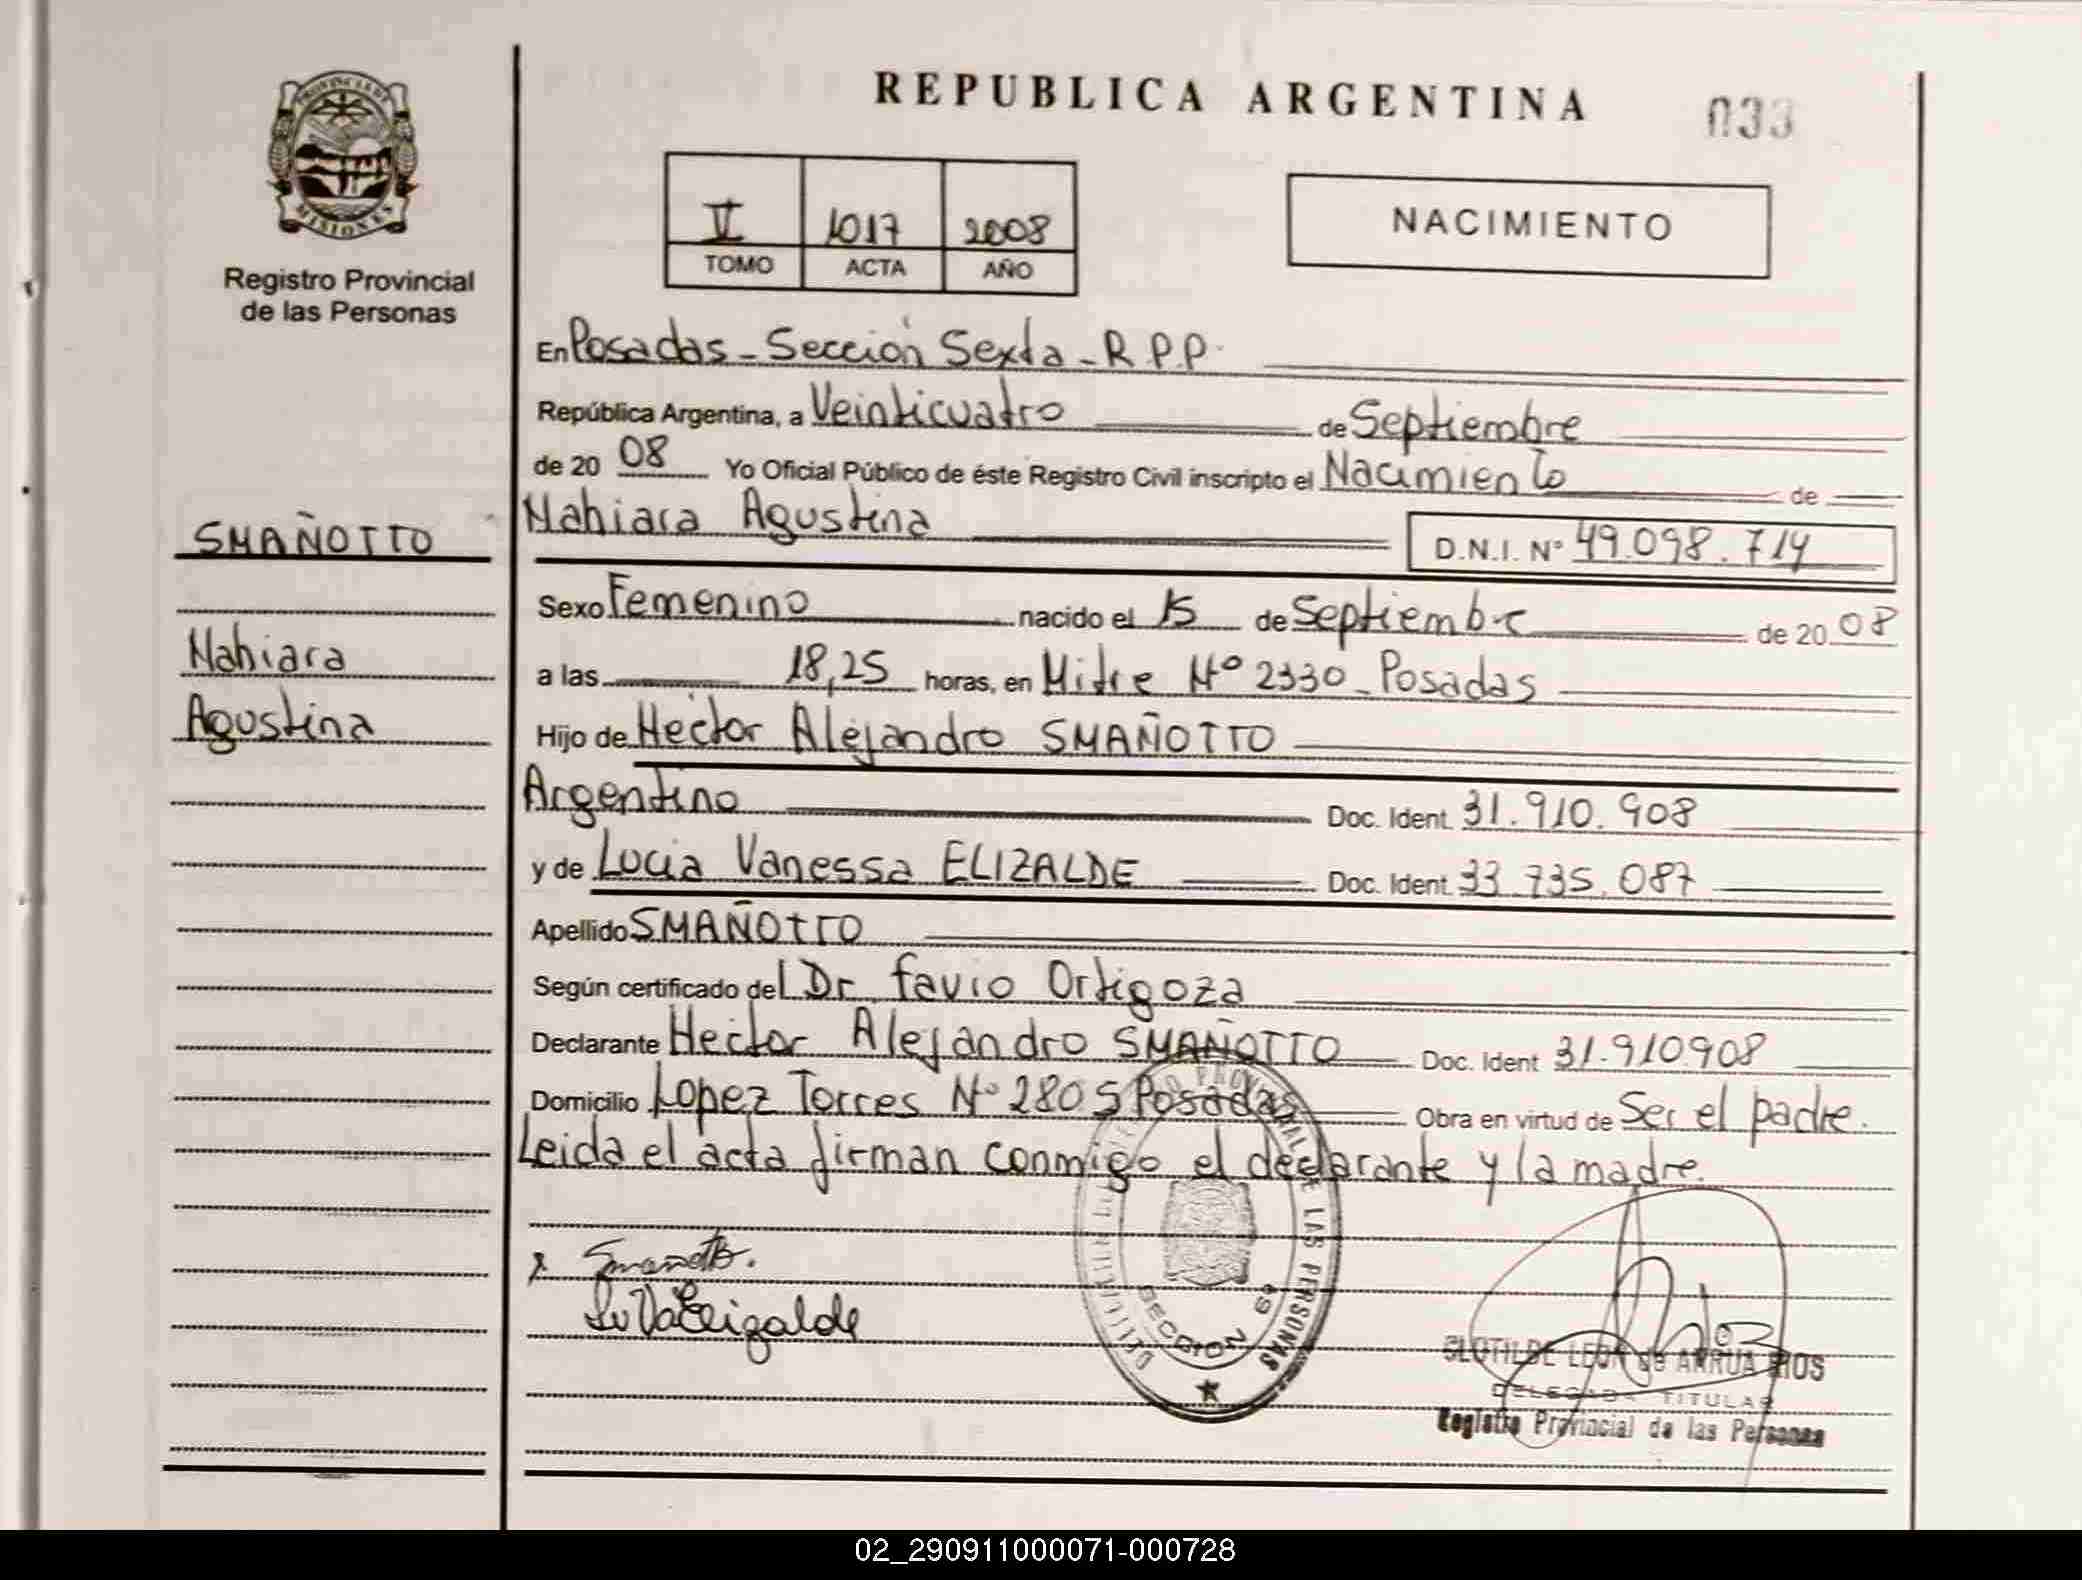 REPUBLICA ARGENTINA
033
PROVINCIA DE
MISIONES
Registro Provincial
de las Personas
V 1017 2008
TOMO ACTA AÑO
NACIMIENTO
En Posadas - Sección Sexta - R.P.P.
República Argentina, a Veinticuatro de Septiembre
de 20 08 Yo Oficial Público de éste Registro Civil inscripto el Nacimiento de
SMAÑOTTO
Nahiara Agustina D.N.I. Nº 49.098.714
Sexo Femenino nacido el 15 de Septiembre de 20 08
Nahiara
Agustina
a las 18,25 horas, en Mitre Nº 2330 - Posadas
Hijo de Hector Alejandro SMAÑOTTO
Argentino Doc. Ident. 31.910.908
y de Lucia Vanessa ELIZALDE Doc. Ident. 33.735.087
Apellido SMAÑOTTO
Según certificado del Dr. Favio Ortigoza
Declarante Hector Alejandro SMAÑOTTO Doc. Ident 31.910.908
Domicilio Lopez Torres Nº 2805 Posadas Obra en virtud de Ser el padre.
Leida el acta firman conmigo el declarante y la madre.
PROVINCIAL DE LAS PERSONAS
SECCION 6ª
x Smanotto.
LuVaElizalde
CLOTILDE LEON de ARRUA RIOS
DELEGADA TITULAR
Registro Provincial de las Personas
02_290911000071-000728